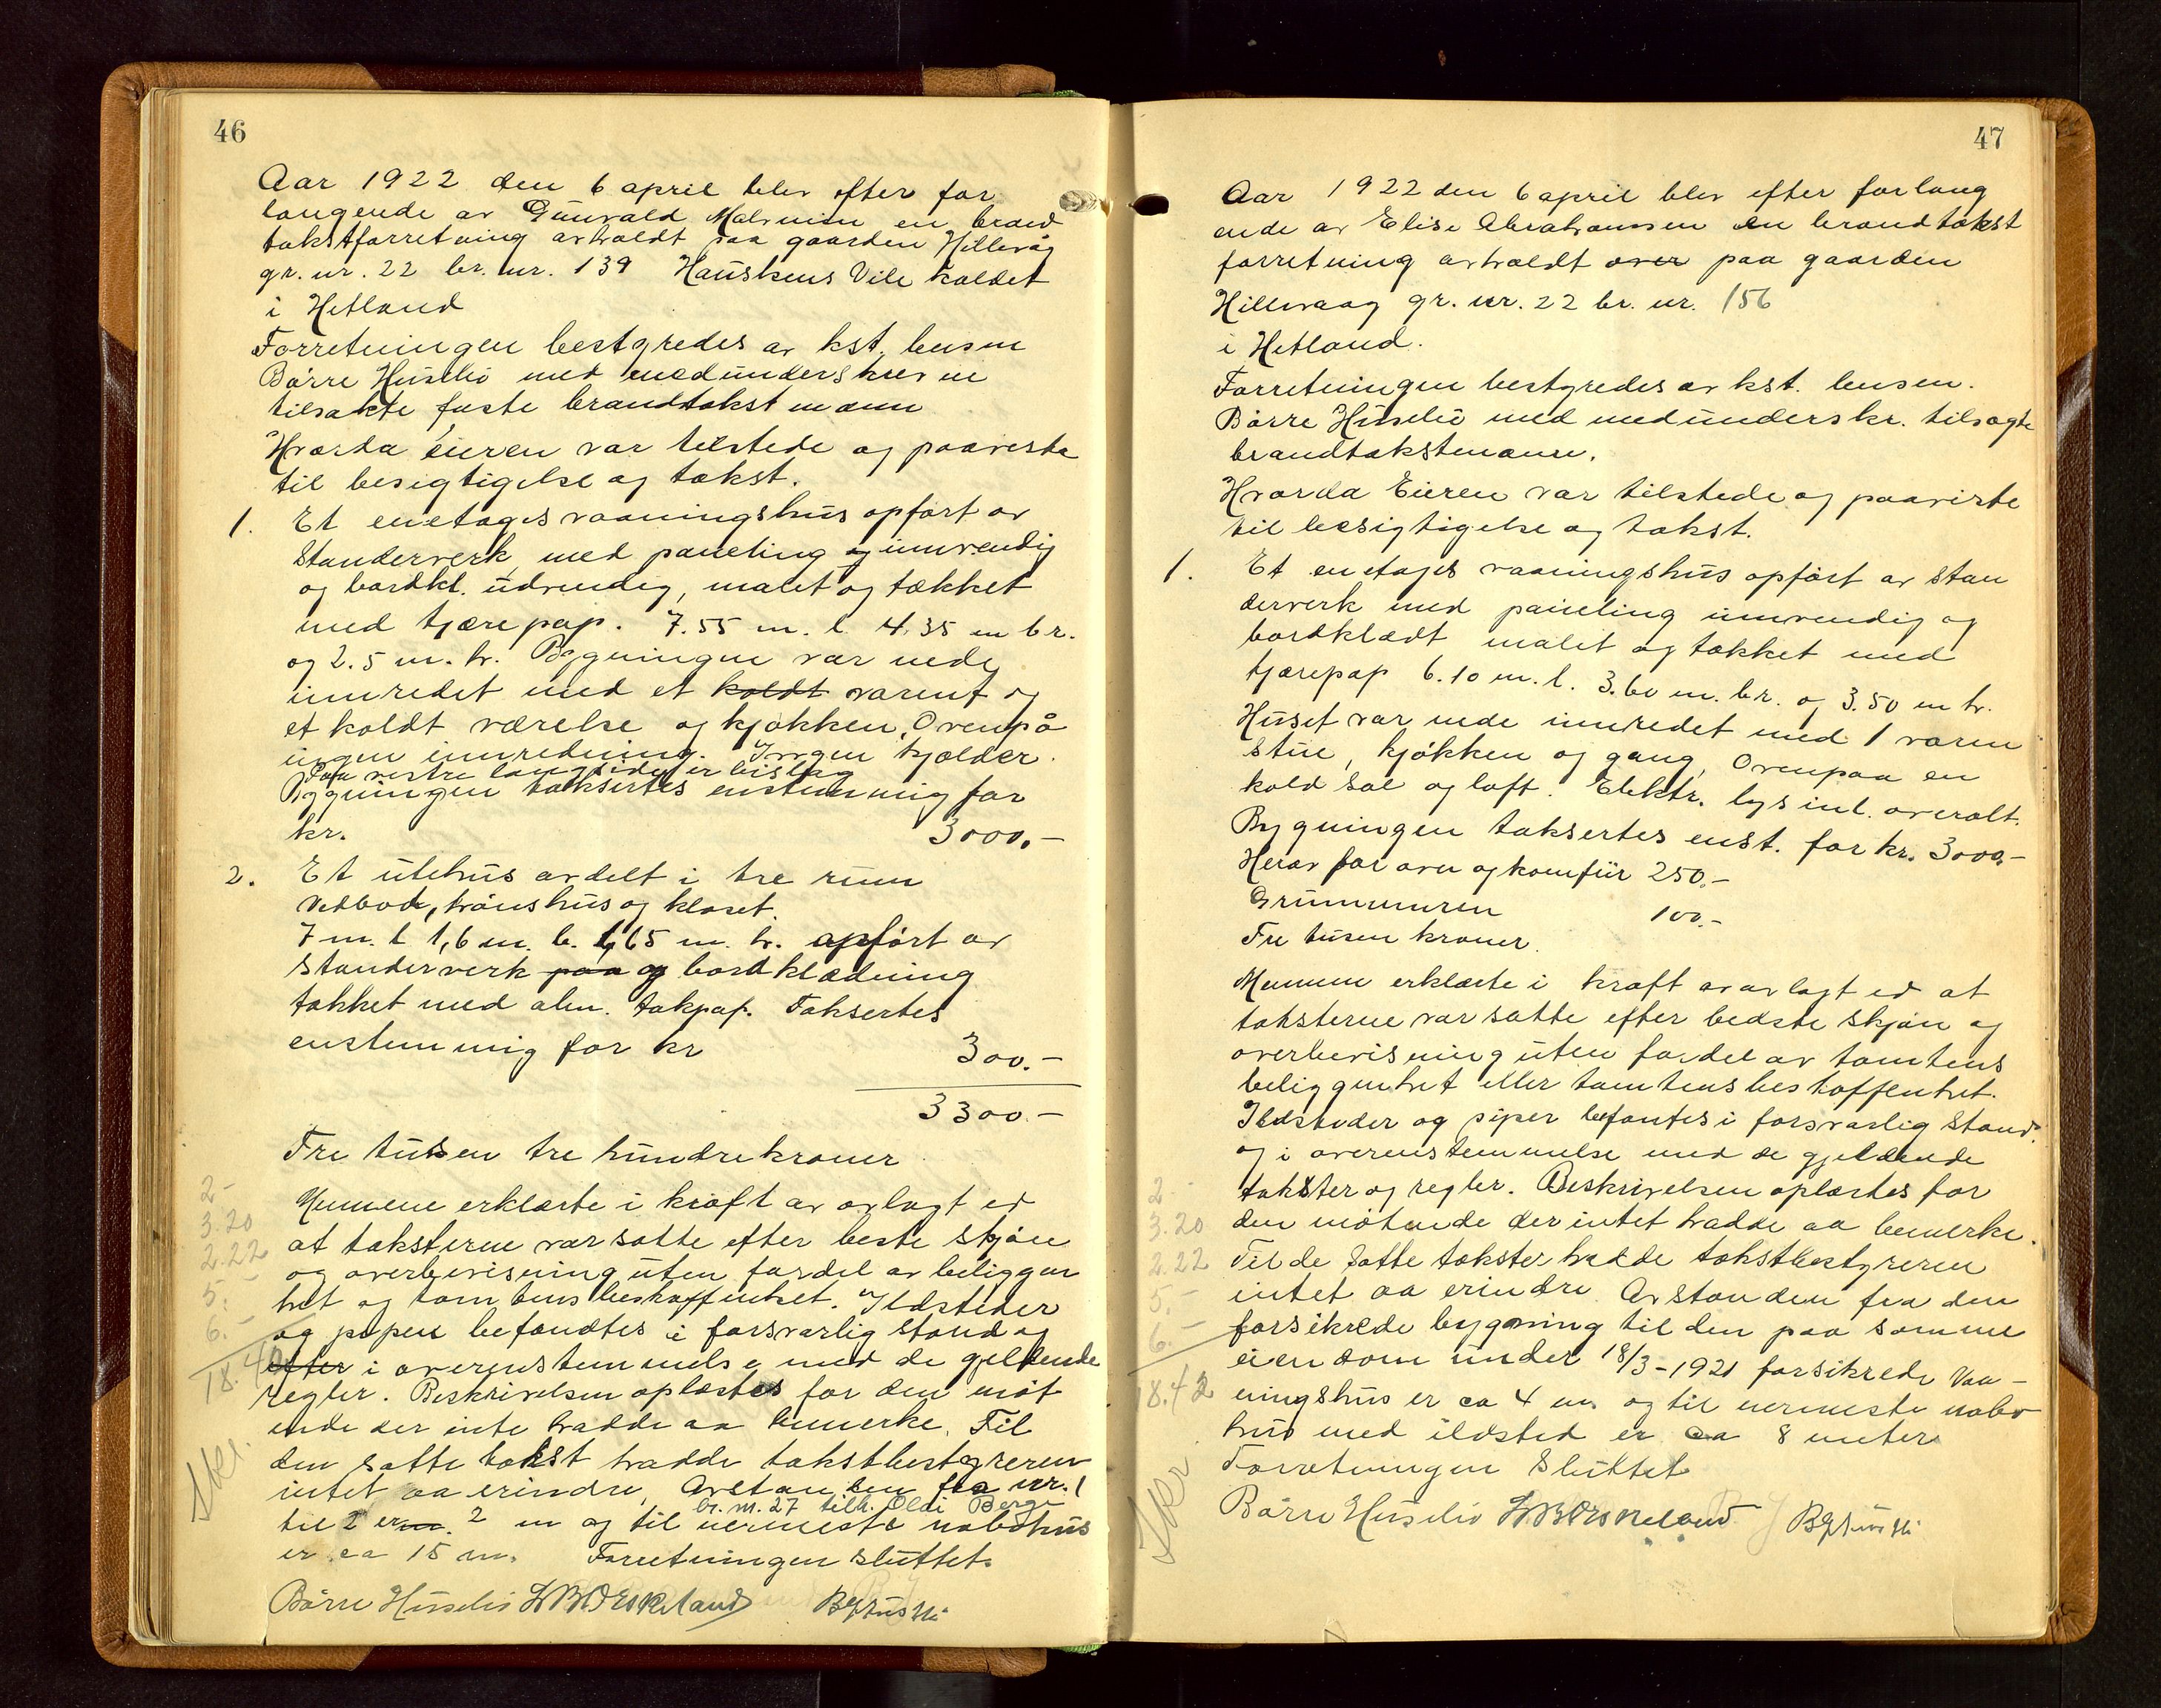 46
Aar 1922 den 6 april blev efter for
langende av Gunvald Malmin en brand
takstforretning avholdt paa gaarden Hillevåg
gr. nr. 22 br. nr. 139 Hauskens Vile kaldet
i Hetland
Forretningen bestyredes av kst. lensm
Børre Huseliø med medunderskrevne
tilsakte faste brandtakstmænn
Hvorda eieren var tilstede og paaviste
til besigtigelse og takst.
1. Et enetages vaaningshus opført av
standerverk med paneling og innvendig
og bordkl. udvendig, malet og tækket
med tjærepap. 7.55 m. l 4.35 m br.
og 2.5 m. h. Bygningen var nede
innredet med et koldt varemt og
et koldt værelse og kjøkken, Ovenpå
ingen innredning. Ingen kjælder.
Paa vestre langside er bislag
Bygningen taksertes enstemmig for
kr. 3000.-
2. Et utehus avdelt i tre rum
Vedbod, hønshus og kloset.
7 m. l 1,6 m. b. 1,65 m. h. opført av
standerverk paa og bordklædning
tækket med alm. takpap. Taksertes
enstemmig for kr 300.-
3300.-
Tre tusen tre hundre kroner
Mennene erklærte i kraft av avlagt ed
at taksterne var satte efter beste skjøn
og overbevisning uten fordel av beliggen
het og tomtens beskaffenhet. Ildsteder
og pipen befandtes i forsvarlig stand og
efter i overenstemmelse med de gjeldende
regler. Beskrivelsen oplæstes for den møt
ende der inte hadde aa bemerke. Til
den satte takst hadde takstbestyreren
intet aa erindre, Avstanden fra nr. 1
br. nr. 27 tilh. Oldi Berge
til 2 er m. 2 m og til nermeste nabohus
er ca 15 m. Forretningen sluttet.
Børre Huseliø
2-
3.20
2.22
5.-
6.-
18.42
47
Aar 1922 den 6 april blev efter forlang
ende av Elise Abrahamsen en brandtakst
forretning avholdt over paa gaarden
Hillevaag gr. nr. 22 br. nr. 156
i Hetland.
Forretningen bestyredes av kst. lensm.
Børre Huseliø med medunderskr. tilsagte
brandtakstmænn.
Hvorda Eieren var tilstede og paaviste
til besigtigelse og takst.
1. Et enetages vaaningshus opført av stan
derverk med paneling innvendig og
bordklædt malet og tækket med
tjærepap 6.10 m. l. 3.60 m. br. og 3.50 m h.
Huset var nede innredet med 1 varm
stue, kjøkken og gang, Ovenpaa en
kold sal og loft. Elektr. lys inl. overalt.
Bygningen taksertes enst. for kr. 3000.-
Herav for oven og komfür 250.-
Grunnmuren 100.-
Tre tusen kroner.
Mennene erklærte i kraft av avlagt ed at
taksterne var satte efter bedste skjøn og
overbevisning uten fordel av tomtens
beliggenhet eller tomtens beskaffenhet.
Ildsteder og piper befantes i forsvarlig stand
og i overenstemmelse med de gjeldende
takster og regler. Beskrivelsen oplæstes for
den møtende der intet hadde aa bemerke.
Til de satte takster hadde takstbestyreren
intet aa erindre. Avstanden fra den
forsikrede bygning til den paa samme
eiendom under 18/3-1921 forsikrede Vaa-
ningshus er ca 4 m. og til nermeste nabo
hus med ildsted er ca 8 meter
Forretningen sluttet
Børre Huseliø
2.-
3.20
2.22
5.-
6.-
18.42